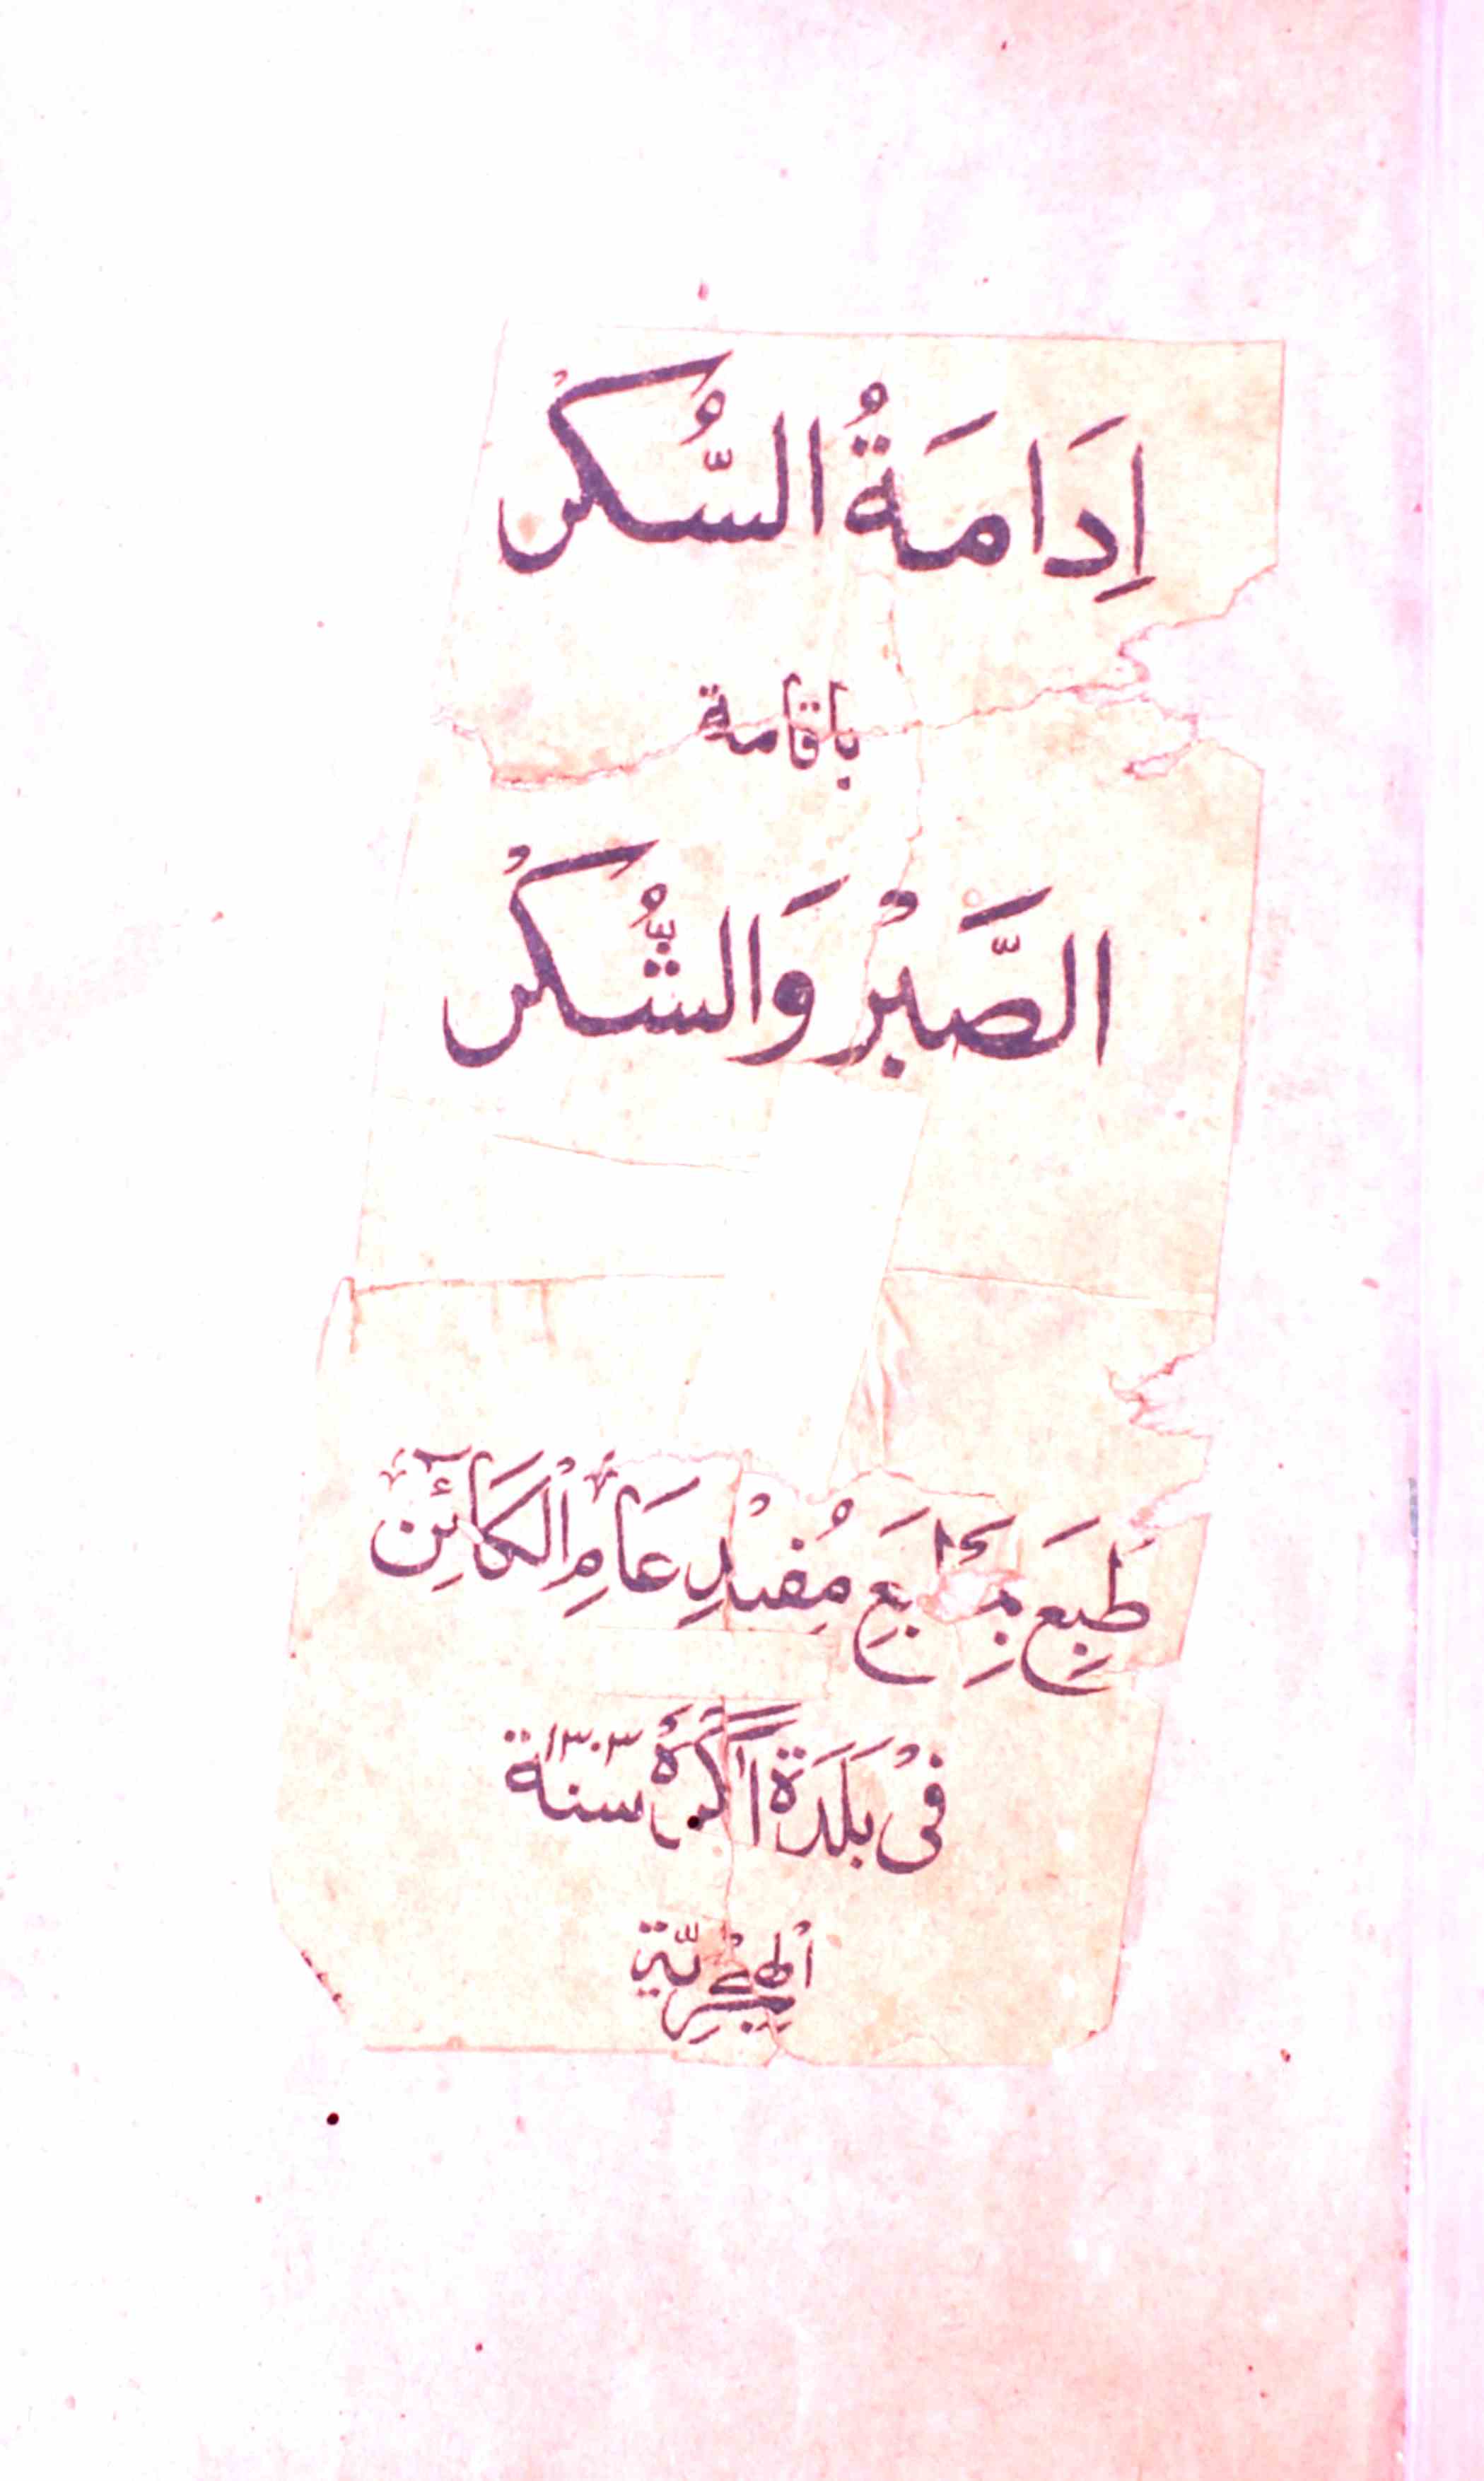 اِدَامَةُ السُّكْر
باقامة
الصَّبْرِ وَالشُّكْر
طُبِعَ بِمَطْبَعِ مُفِيْدِ عَامِ الْكَائِنْ
فِىْ بَلَدَةِ اٰگرَہ سنة ۱۳۰۳
الْهِجْرِيَّة